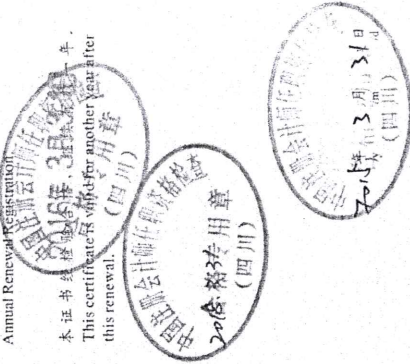 Annual Renewal Registration
本证书经检验合格，继续有效一年。
This certificate is valid for another year after
this renewal.
2016年3月3
(四川)
中国注册会计师任职资格检查
专用章
(四川)
中国注册会计师任职资格检查
2015年3月31日
(四川)